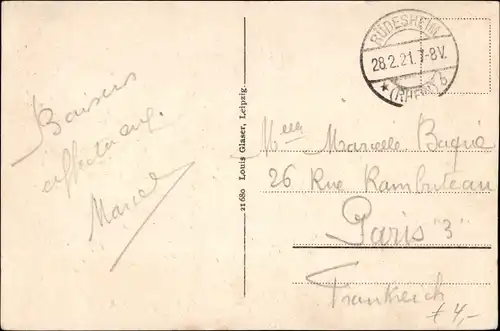 Baisers
affectueux
Marcel
21680 Louis Glaser, Leipzig.
RÜDESHEIM
28.2.21. 7-8V.
* (RHEIN) b
Melle Marcelle Baqué
26 Rue Rambuteau
Paris "3"
Frankreich
€ 4,-